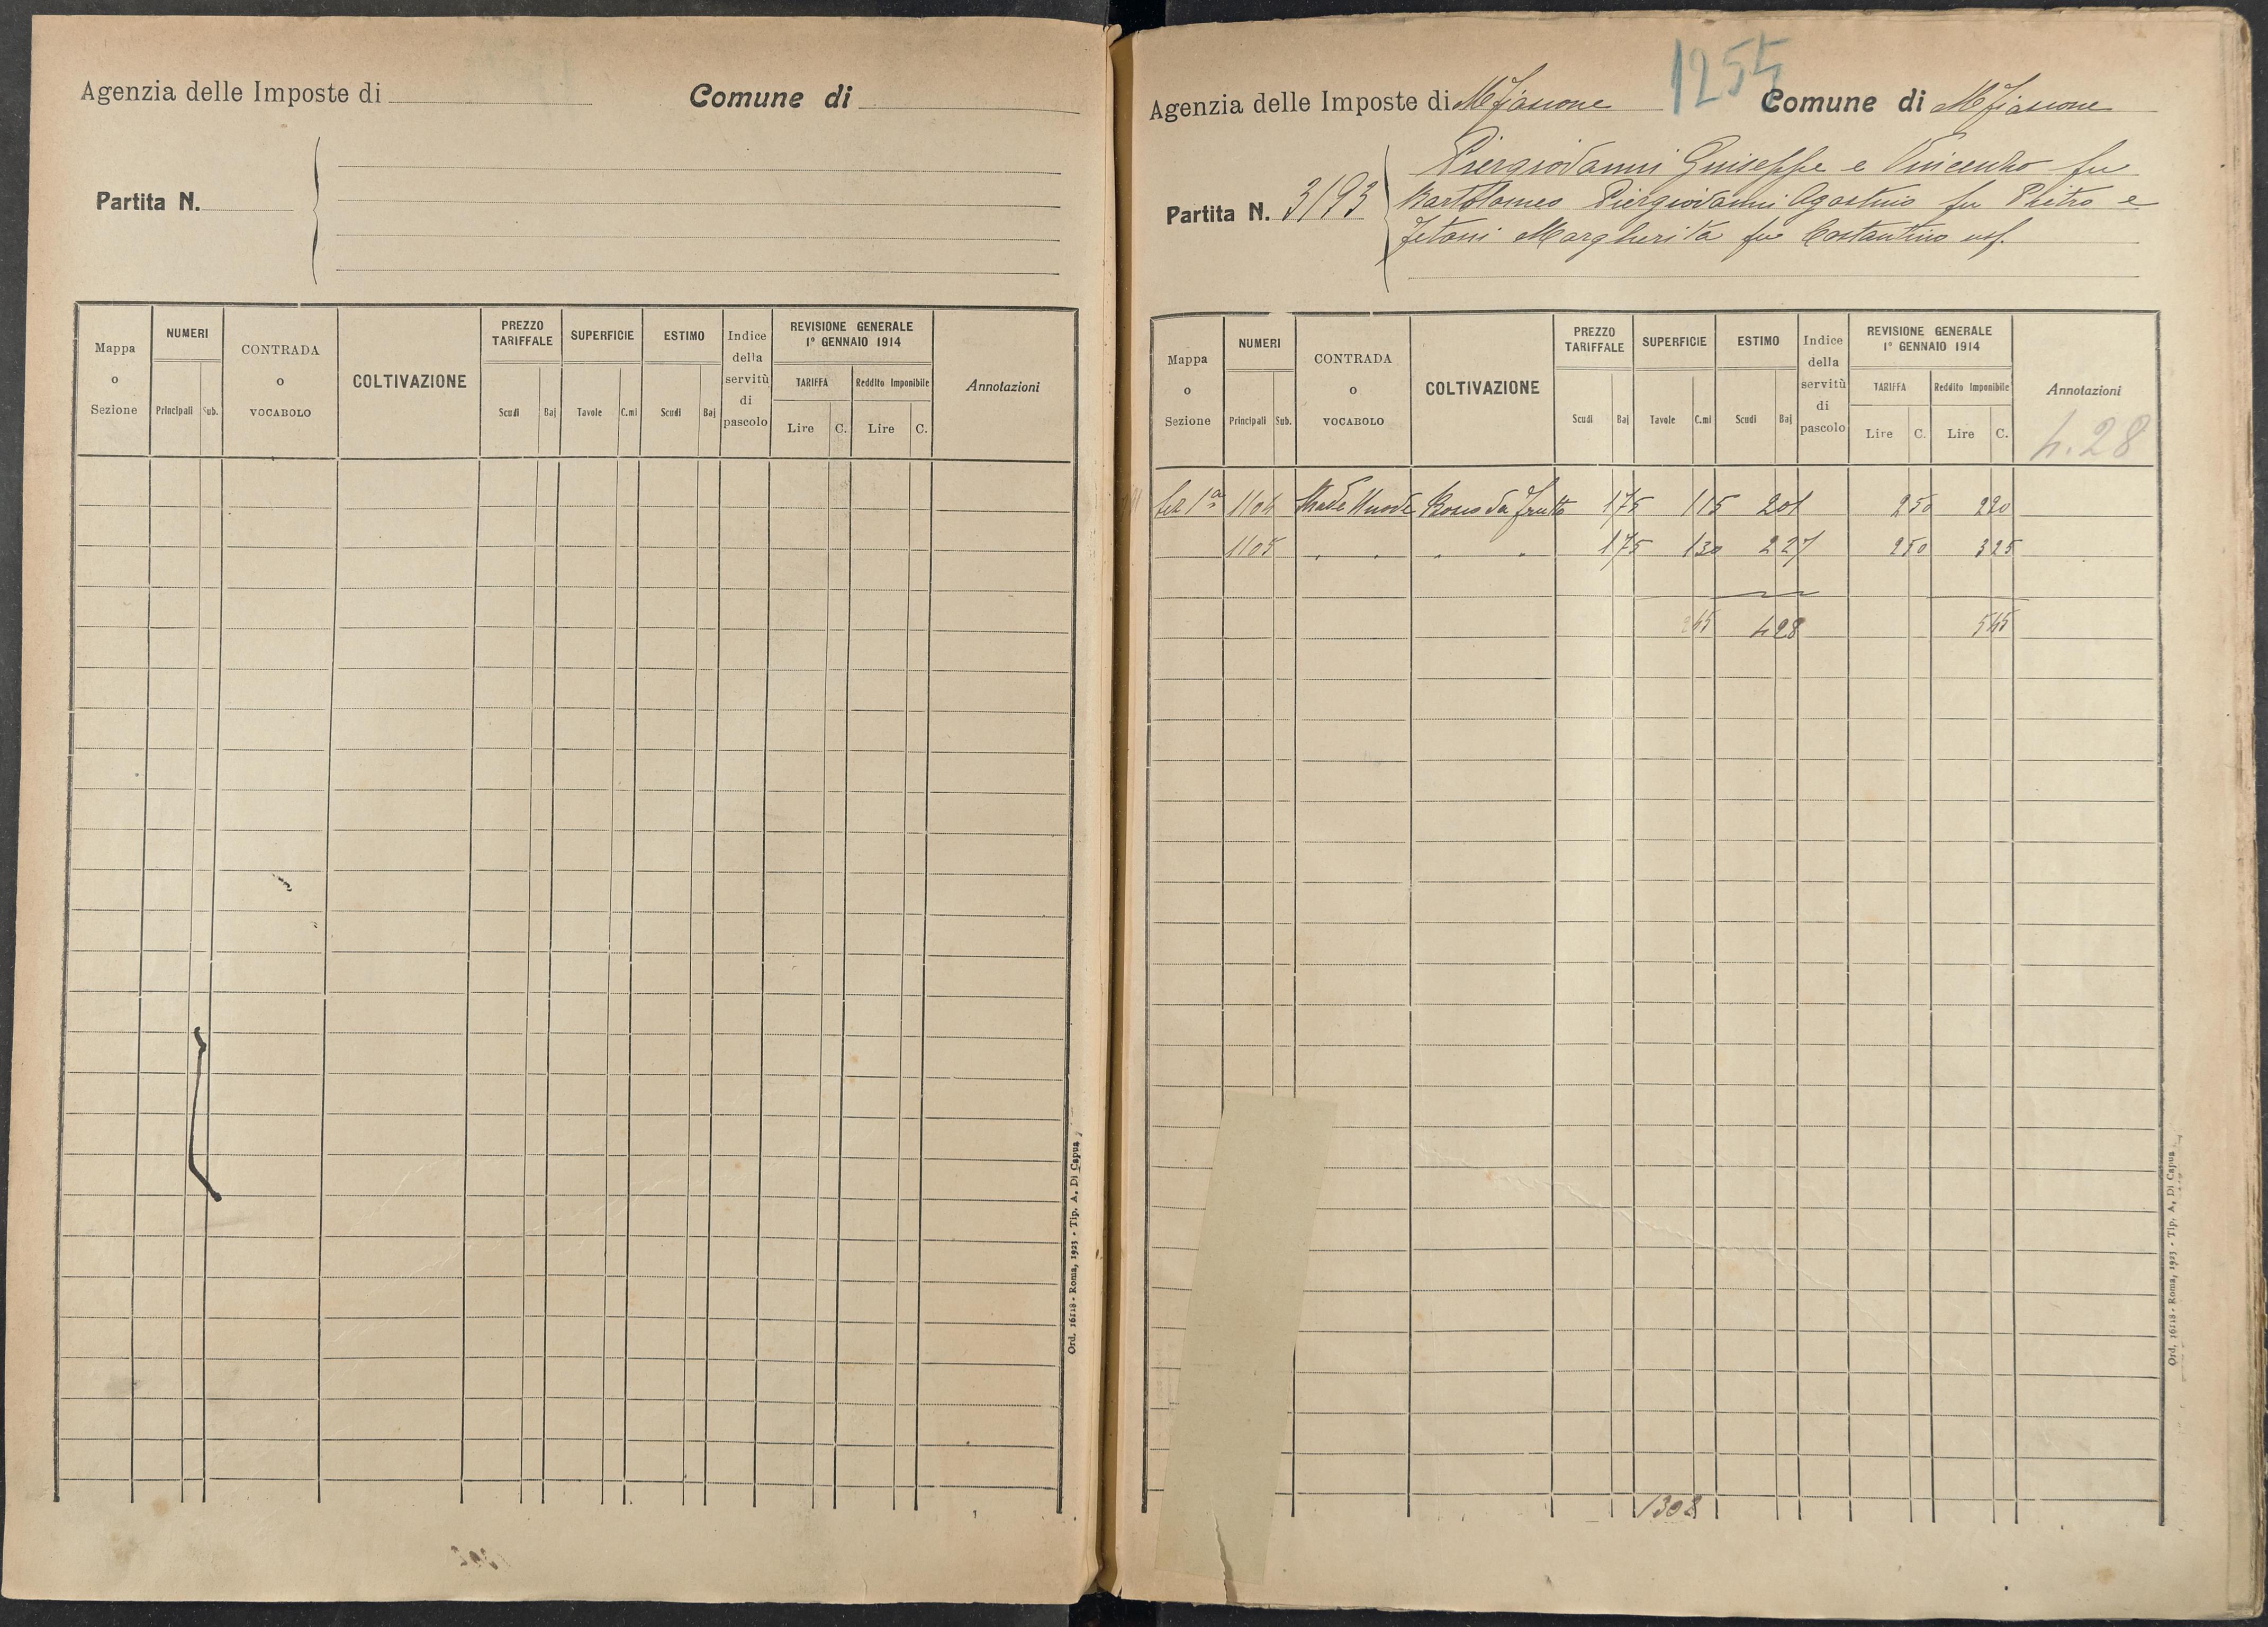 Agenzia delle Imposte di
Comune di
Partita N.
Mappa o Sezione
NUMERI
Principali Sub.
CONTRADA o VOCABOLO
COLTIVAZIONE
PREZZO TARIFFALE
Scudi Baj
SUPERFICIE
Tavole C.mi
ESTIMO
Scudi Baj
Indice della servitù di pascolo
REVISIONE GENERALE
1° GENNAIO 1914
TARIFFA Reddito Imponibile
Lire C. Lire C.
Annotazioni
Ord. 16118 - Roma, 1923 - Tip. A. Di Capua
1255
Agenzia delle Imposte di Mfiascone Comune di Mfiascone
Piergiovanni Giuseppe e Vincenzo fu
Partita N. 3193 Bartolomeo Piergiovanni Agostino fu Pietro e
Margherita fu Costantino usf.
Mappa o Sezione
NUMERI
Principali Sub.
CONTRADA o VOCABOLO
COLTIVAZIONE
PREZZO TARIFFALE
Scudi Baj
SUPERFICIE
Tavole C.mi
ESTIMO
Scudi Baj
Indice della servitù di pascolo
REVISIONE GENERALE
1° GENNAIO 1914
TARIFFA Reddito Imponibile
Lire C. Lire C.
Annotazioni
4.28
Sez 1a 1104 da frutto 175 115 201 250 220
1105 " " " " 175 130 227 250 325
245 428 545
1308
Ord. 16118 - Roma, 1923 - Tip. A. Di Capua